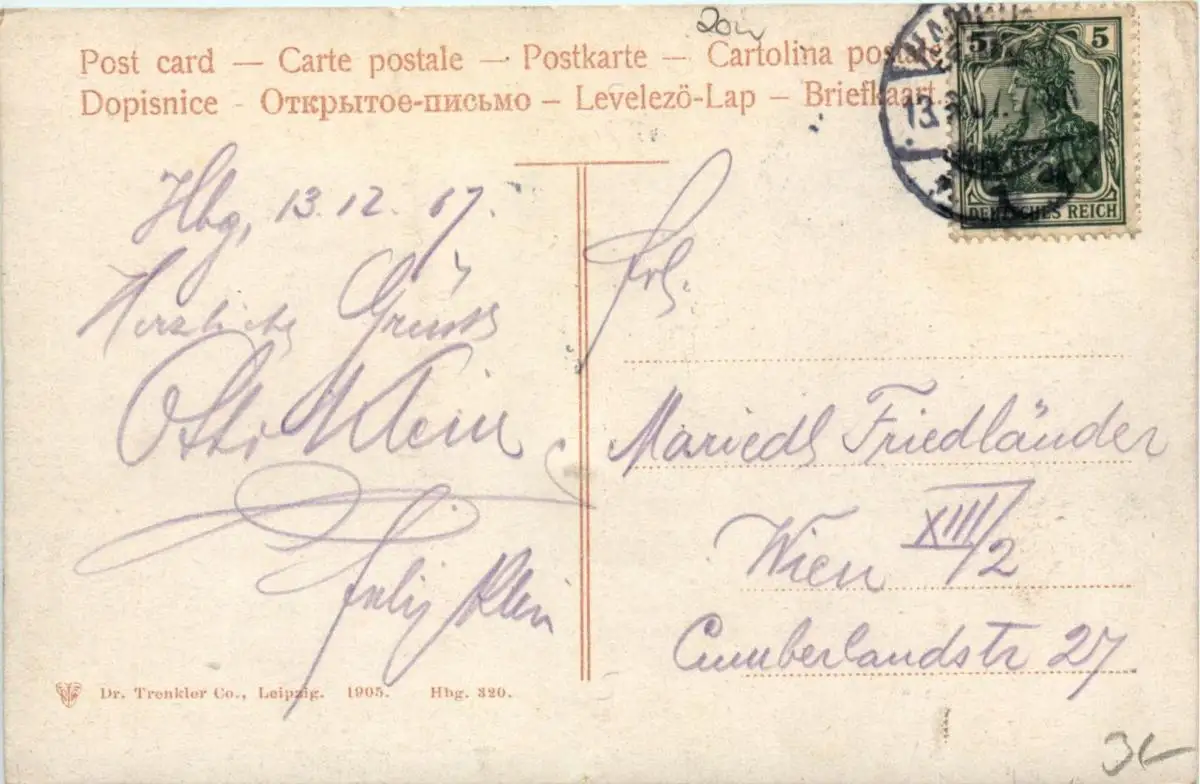 Post card — Carte postale — Postkarte — Cartolina postale
Dopisnice - Открытое-письмо – Levelezö-Lap – Briefkaart.
5 5
DEUTSCHES REICH
13.
1
Hbg, 13 12. 07.
Herzliche Grüsse
Otto Klein
Felix Klein
Frl.
Mariedl Friedländer
Wien XIII/2
Cumberlandstr 27
Dr. Trenkler Co., Leipzig. 1905. Hbg. 320.